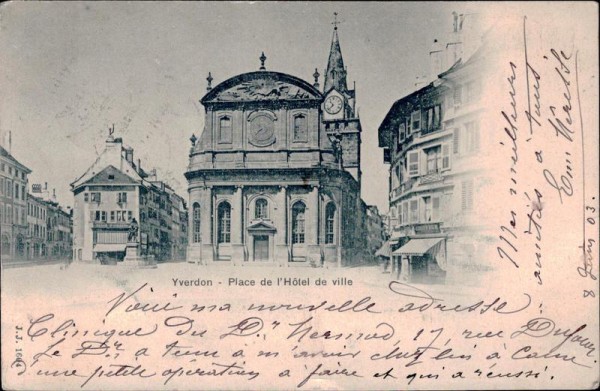 Yverdon - Place de l'Hôtel de ville
J. J. 166
Voici ma nouvelle adresse
Clinique du Dr. 17, rue Dufour.
Le Dr. a tenu à m'avoir chez lui à cause
une petite opération à faire et qui a réussi.
Mes meilleures
amitiés à tous
8 Juin 03.